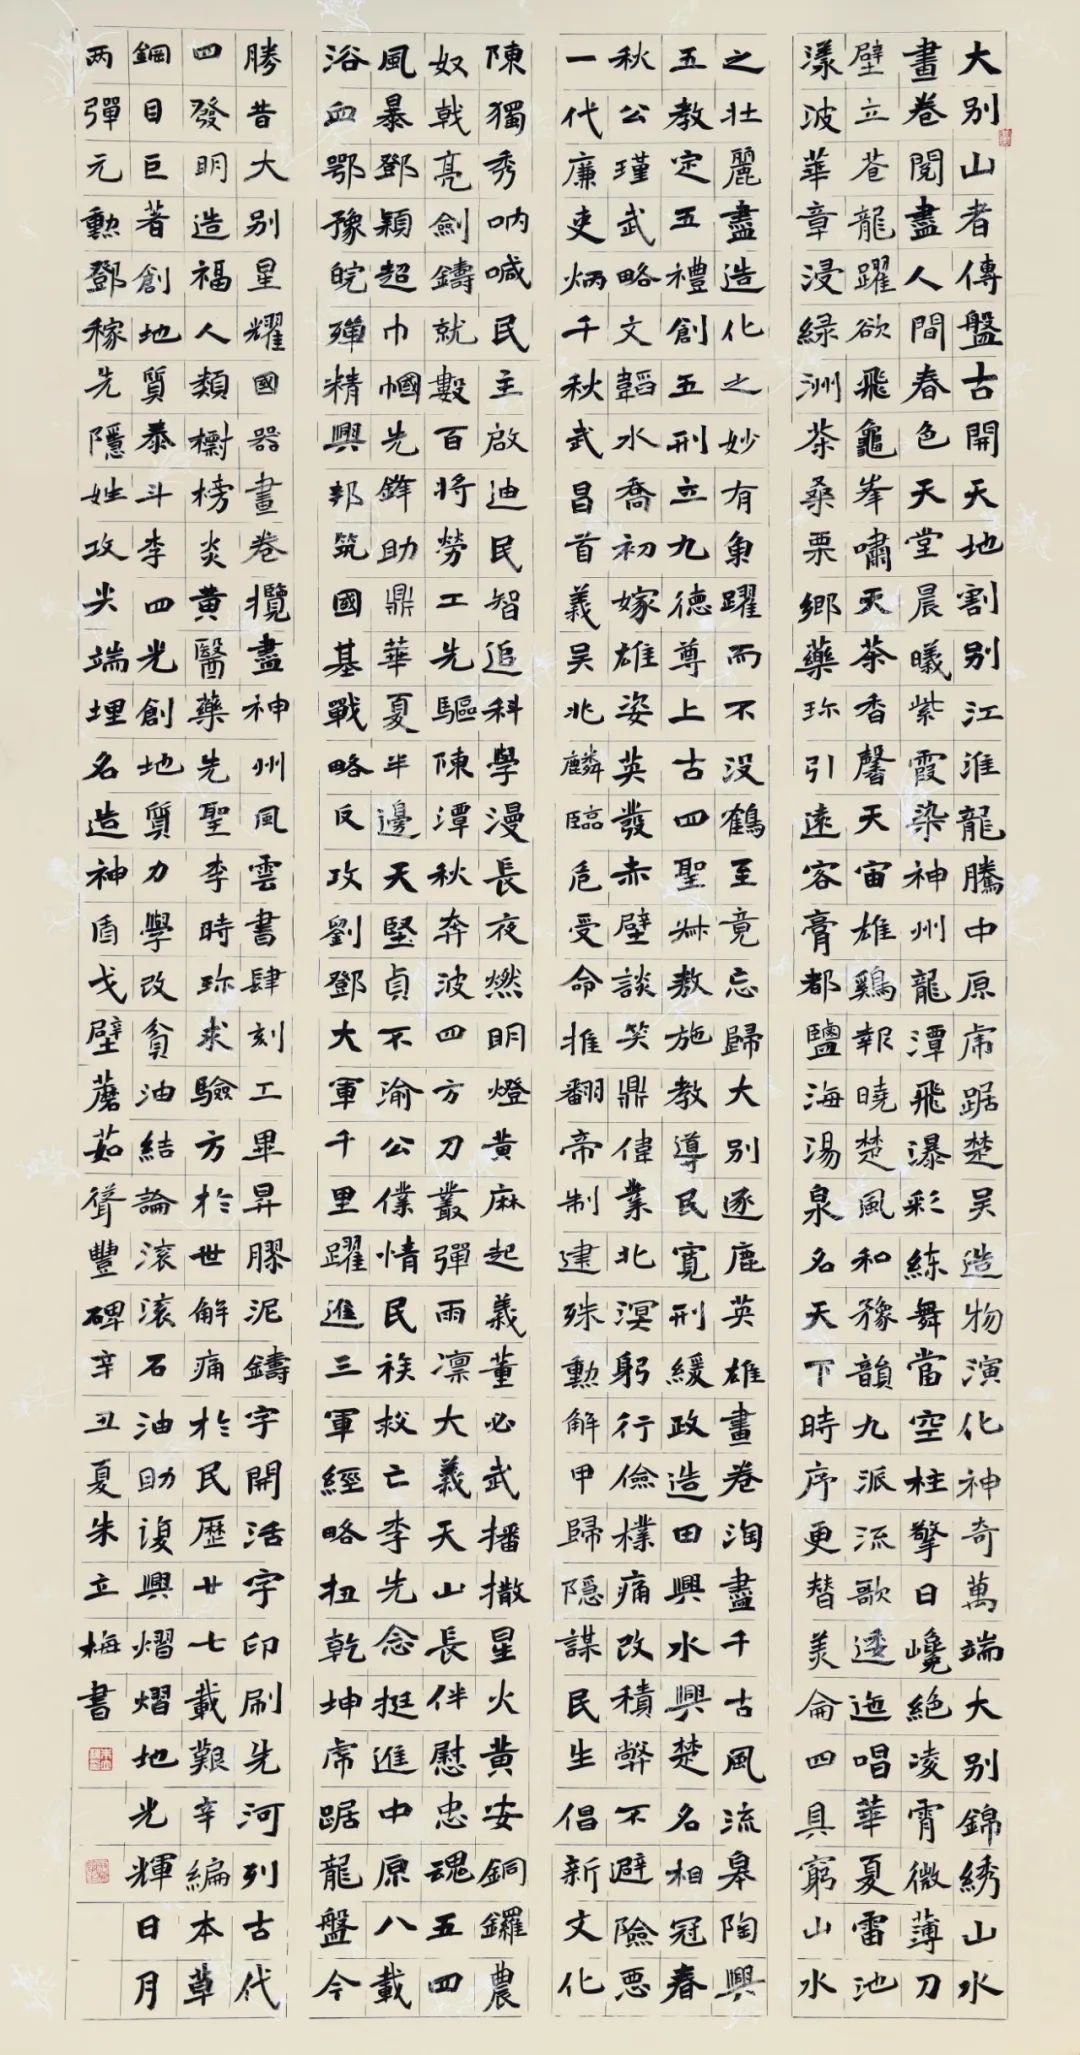 大别山者傳盤古開天地割别江淮龍騰中原虎踞楚吴造物演化神奇萬端大别錦綉山水
畫卷閲盡人間春色天堂晨曦紫霞染神州龍潭飛瀑彩練舞當空柱擎日巉絶凌霄微薄刀
壁立苍龍躍欲飛龜峯嘯天茶香馨天宙雄鷄報曉楚風和豫韻九派流歌逶迤唱華夏雷池
漾波華章浸緑洲茶桑栗鄉藥珎引遠客膏都鹽海湯泉名天下時序更替美侖四具窮山水
之壮麗盡造化之妙有魚躍而不没鶴至竟忘歸大别逐鹿英雄畫卷淘盡千古風流皋陶興
五教定五禮創五刑立九德尊上古四聖敷施教導民寛刑緩政造田興水興楚名相冠春
秋公瑾武略文韜水喬初嫁雄姿英發赤壁談笑鼎偉業北溟躬行儉樸痛改積弊不避險惡
一代廉吏炳千秋武昌首義吴兆麟臨危受命推翻帝制建殊勳解甲歸隱謀民生倡新文化
陳獨秀呐喊民主啟迪民智追科學漫長夜燃明燈黄麻起義董必武播撒星火黄安銅鑼農
奴戟亮劍鑄就數百将勞工先驅陳潭秋奔波四方刀叢彈雨凛大義天山長伴慰忠魂五四
風暴鄧穎超巾幗先鋒助鼎華夏半邊天堅貞不渝公僕情民族救亡李先念挺進中原八載
浴血鄂豫皖殫精興邦筑國基戰略反攻劉鄧大軍千里躍進三軍經略扭乾坤虎踞龍盤今
勝昔大别星耀國器畫卷攬盡神州風雲書肆刻工畢昇膠泥鑄字開活字印刷先河列古代
四發明造福人類榭榜炎黄醫藥先聖李時珎求驗方於世解痛於民歷廿七載艱辛編本草
鋼目巨著創地質泰斗李四光創地質力學改貧油結論滚滚石油助復興熠熠地光輝日月
两彈元勳鄧稼先隱姓攻尖端埋名造神盾戈壁蘑茹聳豐碑辛丑夏朱立梅書